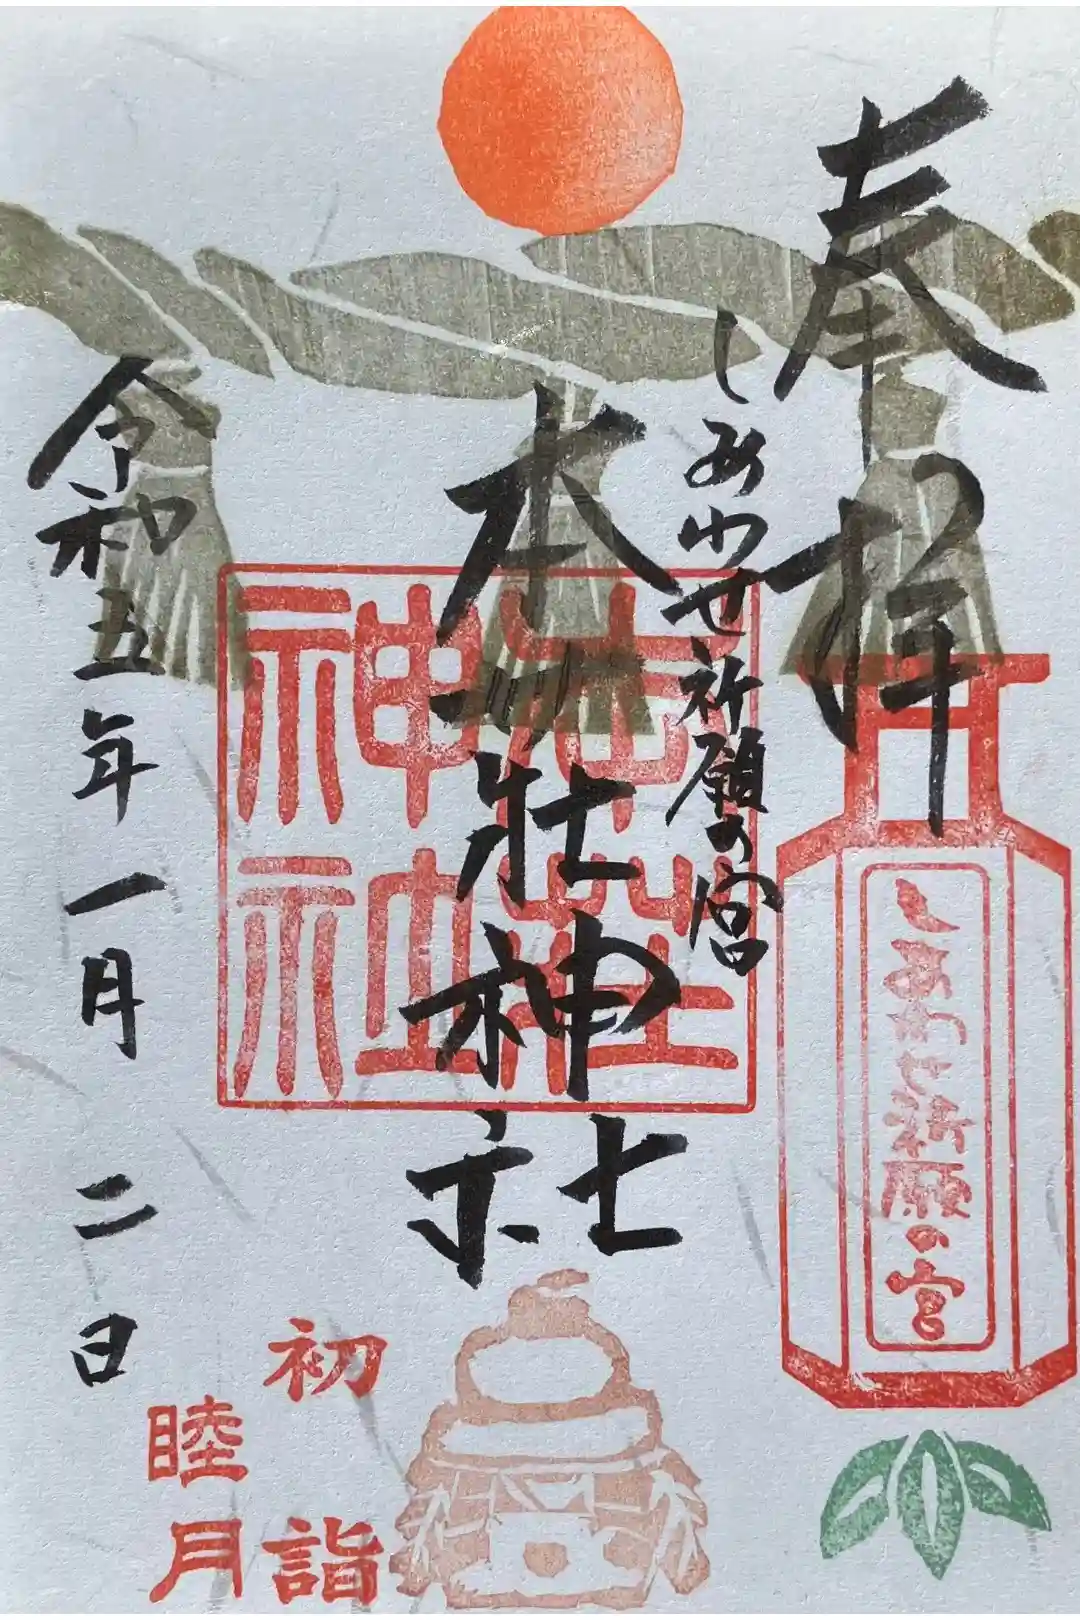 奉拝
しあわせ祈願の宮
しあわせ祈願の宮
本荘神社
本荘
神社
令和五年一月二日
初詣
睦月